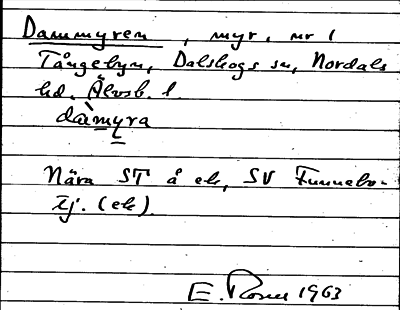 Dammyren, myr, nr 1
Tångebyn, Dalskogs sn, Nordals
hd. Älvsb. l.
dàmyra
Nära ST å ek, SV Funnebo-
tj. (ek).
E. Rosen 1963